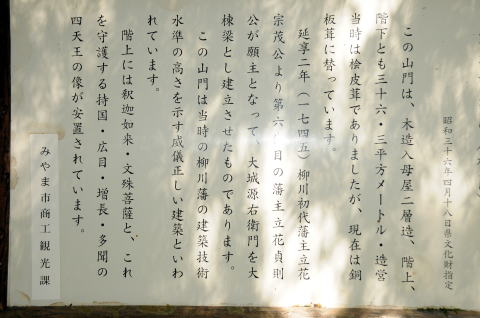 昭和三十六年四月十八日県文化財指定
この山門は、木造入母屋二層造、階上、
階下とも三十六・三平方メートル・造営
当時は桧皮葺でありましたが、現在は銅
板葺に替っています。
延享二年（一七四五）柳川初代藩主立花
宗茂公より第六代目の藩主立花貞則
公が願主となって、大城源右衛門を大
棟梁とし建立させたものであります。
この山門は当時の柳川藩の建築技術
水準の高さを示す威儀正しい建築といわ
れています。
階上には釈迦如来・文殊菩薩と、これ
を守護する持国・広目・増長・多聞の
四天王の像が安置されています。
みやま市商工観光課